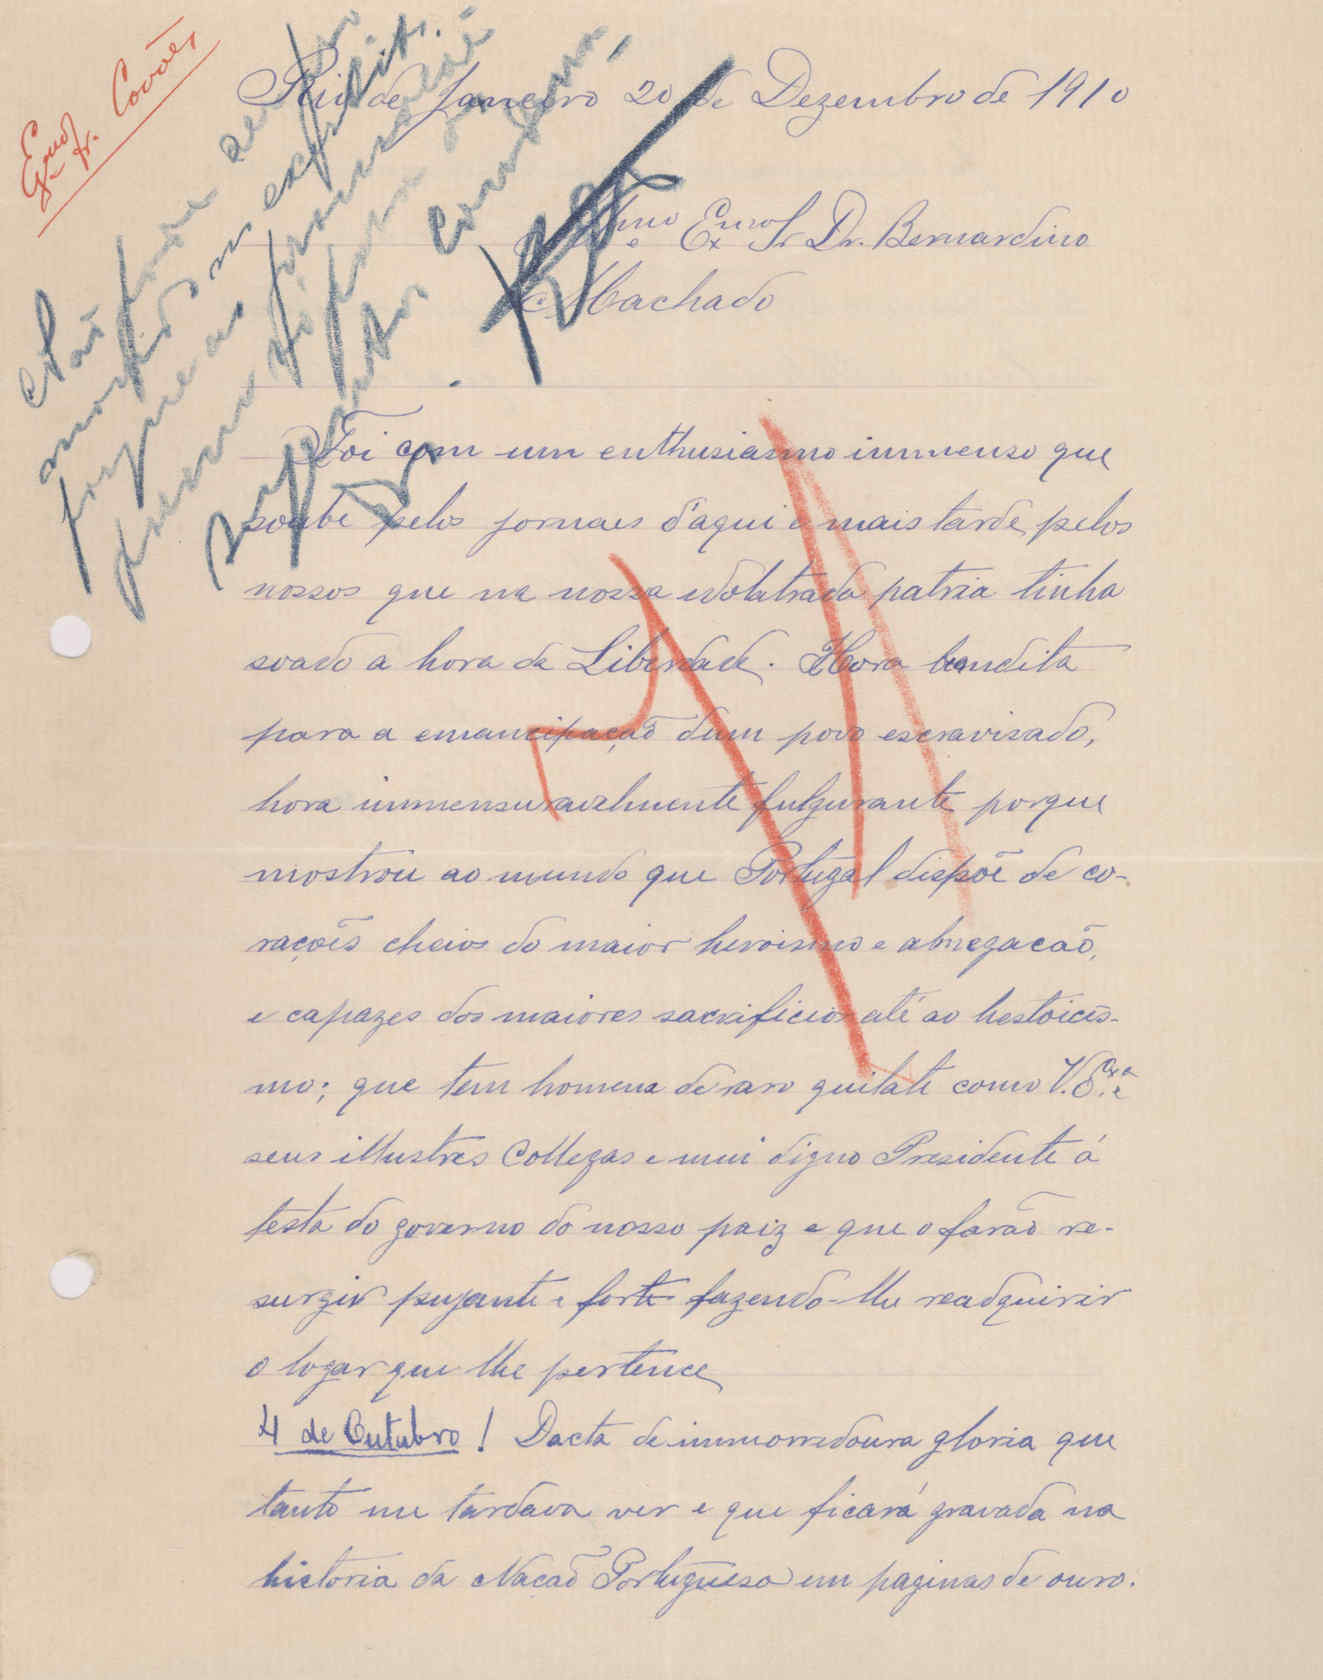 Rio de Janeiro 20 de Dezembro de 1910
Illmo e Exmo Sr Dr. Bernardino
Machado
Foi com um enthusiasmo immenso que
soube pelos jornaes d'aqui e mais tarde pelos
nossos que na nossa idolatrada patria tinha
soado a hora da Liberdade. Hora bendita
para a emancipação dum povo escravisado,
hora immensuravelmente fulgurante porque
mostrou ao mundo que Portugal dispõe de co-
rações cheios do maior heroismo e abnegacão,
e capazes dos maiores sacrificios até ao hestoicis-
mo; que tem homens de raro quilate como V. Exa e
seus illustres Collegas e mui digno Presidente á
testa do governo do nosso paiz e que o farão re-
surgir pujante e forte fazendo-lhe readquirir
o logar que lhe pertence
4 de Outubro! Dacta de immorredoura gloria que
tanto me tardava ver e que ficará gravada na
historia da Nação Portugueza em paginas de ouro.
Não pode ser
porque as